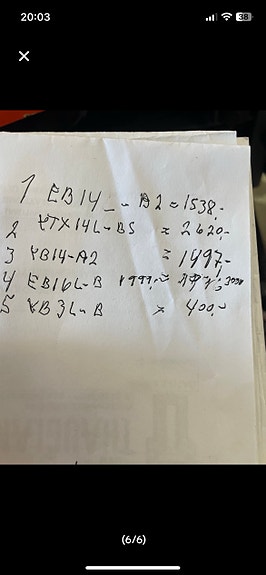 20:03
38
1 EB14_ - A2 = 1538.-
2 YTX14L-BS = 2620.-
3 YB14-A2 = 1497.-
4 EB16L-B 1999.-
5 YB3L-B × 400.-
(6/6)